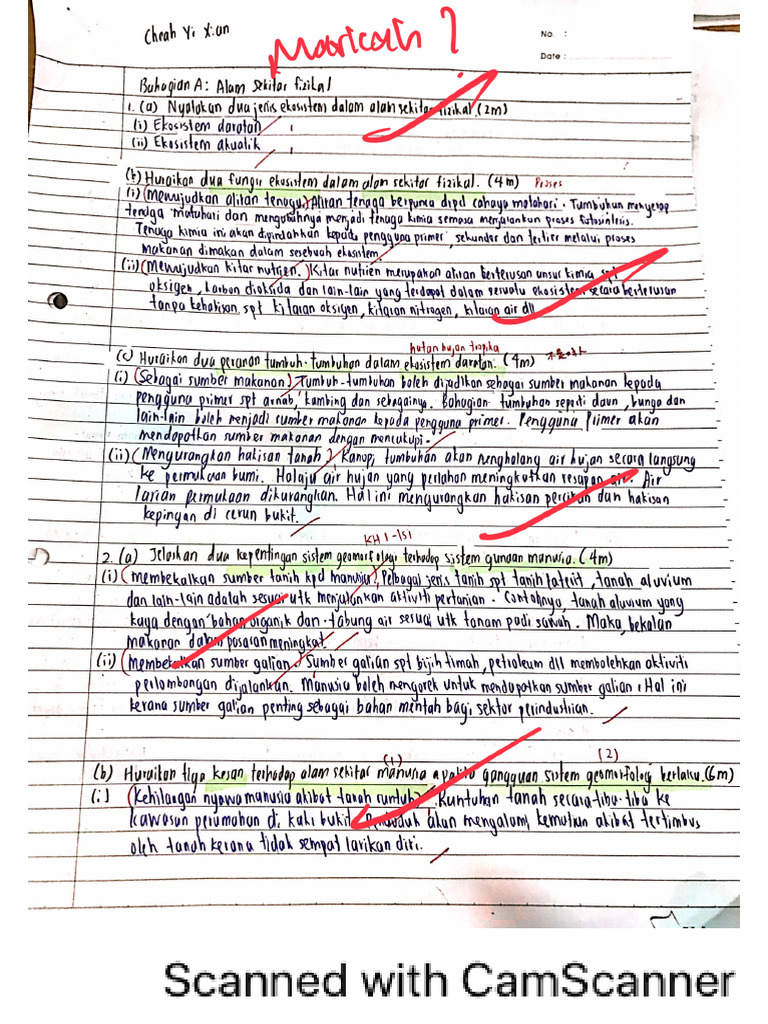 Cheah Yi Xian
No. :
Date :
Bahagian A: Alam sekitar fizikal
1. (a) Nyatakan dua jenis ekosistem dalam alam sekitar fizikal. (2m)
(i) Ekosistem daratan
(ii) Ekosistem akuatik
(b) Huraikan dua fungsi ekosistem dalam alam sekitar fizikal. (4m) Proses
(i) (Mewujudkan aliran tenaga.) Aliran tenaga berpunca dipd cahaya matahari. Tumbuhan menyerap
tenaga matahari dan mengubahnya menjadi tenaga kimia semasa menjalankan proses fotosintesis.
Tenaga kimia ini akan dipindahkan kepada pengguna primer, sekunder dan tertier melalui proses
makanan dimakan dalam sesebuah ekosistem.
(ii) (Mewujudkan kitar nutrien.) Kitar nutrien merupakan aliran berterusan unsur kimia spt
oksigen, karbon dioksida dan lain-lain yang terdapat dalam sesuatu ekosistem secara berterusan
tanpa kehabisan spt kitaran oksigen, kitaran nitrogen, kitaran air dll
hutan hujan tropika
(c) Huraikan dua peranan tumbuh-tumbuhan dalam ekosistem daratan. (4m)
(i) (Sebagai sumber makanan) Tumbuh-tumbuhan boleh dijadikan sebagai sumber makanan kepada
pengguna primer spt arnab, kambing dan sebagainya. Bahagian tumbuhan seperti daun, bunga dan
lain-lain boleh menjadi sumber makanan kepada pengguna primer. Pengguna Primer akan
mendapatkan sumber makanan dengan mencukupi.
(ii) (Mengurangkan hakisan tanah) Kanopi tumbuhan akan menghalang air hujan secara langsung
ke permukaan bumi. Halaju air hujan yang perlahan meningkatkan resapan air. Air
larian permukaan dikurangkan. Hal ini mengurangkan hakisan percikan dan hakisan
kepingan di cerun bukit.
KH 1-Isi
2. (a) Jelaskan dua kepentingan sistem geomorfologi terhadap sistem gunaan manusia. (4m)
(i) (membekalkan sumber tanih kpd manusia) Pelbagai jenis tanih spt tanih laterit, tanah aluvium
dan lain-lain adalah sesuai utk menjalankan aktiviti pertanian. Contohnya, tanah aluvium yang
kaya dengan bahan organik dan tabung air sesuai utk tanam padi sawah. Maka, bekalan
makanan dalam pasaran meningkat.
(ii) (Membekalkan sumber galian. Sumber galian spt bijih timah, petroleum dll membolehkan aktiviti
perlombongan dijalankan. Manusia boleh mengorek untuk mendapatkan sumber galian. Hal ini
kerana sumber galian penting sebagai bahan mentah bagi sektor perindustrian.
(1) (2)
(b) Huraikan tiga kesan terhadap alam sekitar manusia apabila gangguan sistem geomorfologi berlaku. (6m)
(i) (Kehilangan nyawa manusia akibat tanah runtuh) Runtuhan tanah secara tiba-tiba ke
kawasan perumahan di kaki bukit. Penduduk akan mengalami kematian akibat tertimbus
oleh tanah kerana tidak sempat larikan diri.
Scanned with CamScanner